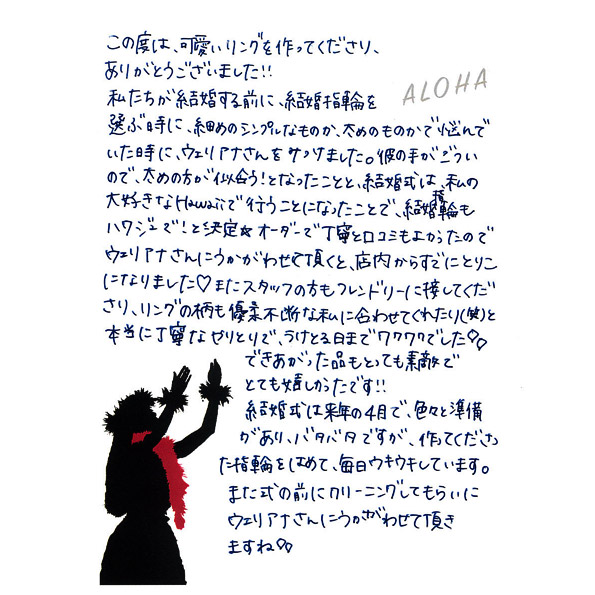 この度は、可愛いリングを作ってくださり、
ありがとうございました!!
ALOHA
私たちが結婚する前に、結婚指輪を
選ぶ時に、細めのシンプルなものか、太めのものかで悩んで
いた時に、ウェリアナさんをみつけました。彼の手がごつい
ので、太めの方が似合う!となったことと、結婚式は、私の
大好きなHawaiiで行うことになったことで、結婚指輪も
ハワジュで!と決定☆オーダーで丁寧と口コミもよかったので
ウェリアナさんにうかがわせて頂くと、店内からすでにとりこ
になりました♡またスタッフの方もフレンドリーに接してくだ
さり、リングの柄も優柔不断な私に合わせてくれたり(笑)と
本当に丁寧なやりとりで、うけとる日までワクワクでした♡♡
できあがった品もとっても素敵で
とても嬉しかったです!!
結婚式は来年の4月で、色々と準備
があり、バタバタですが、作ってくださっ
た指輪をはめて、毎日ウキウキしています。
また式の前にクリーニングしてもらいに
ウェリアナさんにうかがわせて頂き
ますね♡♡